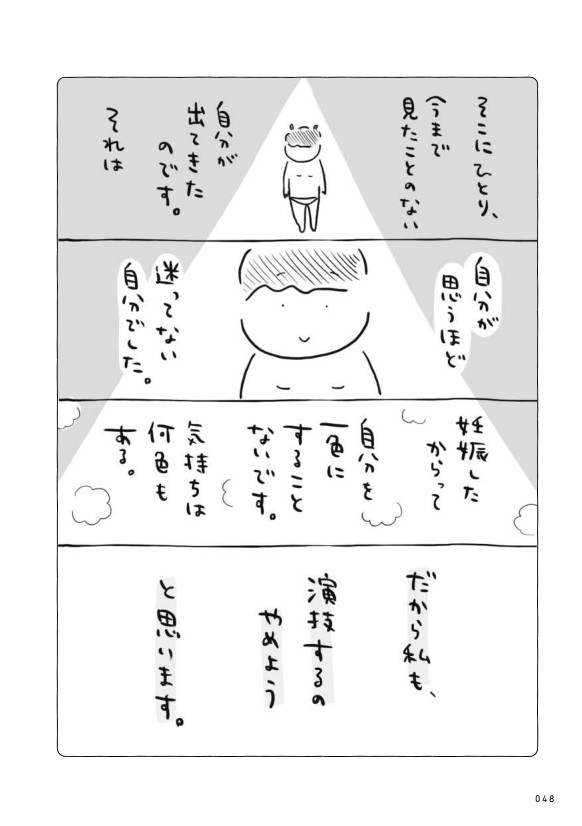 そこにひとり、
今まで
見たことのない
自分が
出てきた
のです。
それは
自分が
思うほど
迷ってない
自分でした。
妊娠した
からって
自分を
一色に
すること
ないです。
気持ちは
何色も
ある。
だから私も、
演技するの
やめよう
と思います。
048